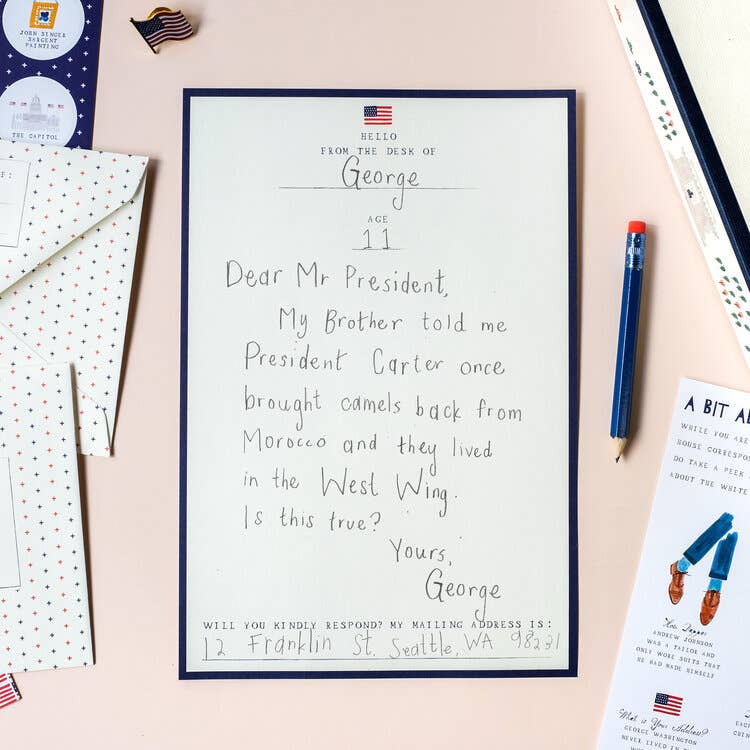 JOHN SINGER
SARGENT
PAINTING
THE CAPITOL
F:
HELLO
FROM THE DESK OF
George
AGE
11
Dear Mr President,
My Brother told me
President Carter once
brought camels back from
Morocco and they lived
in the West Wing.
Is this true?
Yours,
George
WILL YOU KINDLY RESPOND? MY MAILING ADDRESS IS:
12 Franklin St. Seattle, WA 98231
A BIT A
WHILE YOU ARE
HOUSE CORRESPO
DO TAKE A PEEK
ABOUT THE WHITE
ANDREW JOHNSON
WAS A TAILOR AND
ONLY WORE SUITS THAT
HE HAD MADE HIMSELF
What is Your Address?
GEORGE WASHINGTON
NEVER LIVED I